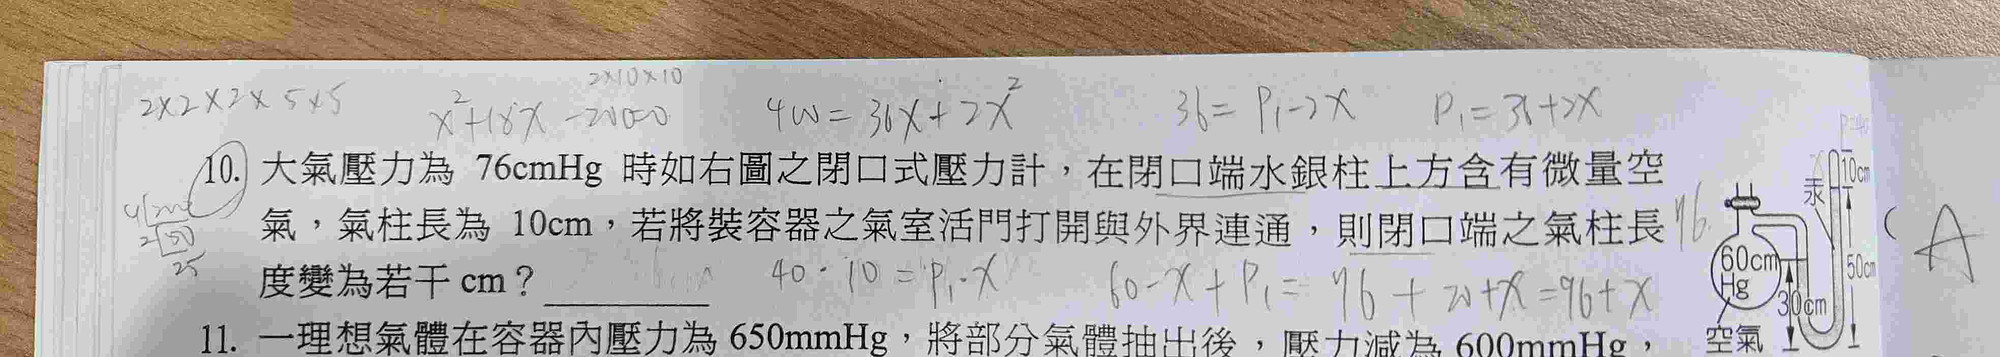 2×10×10
2×2×2×5×5
x²+18x-200=0
400=36x+2x²
36=P₁-2x
P₁=36+2x
10. 大氣壓力為 76cmHg 時如右圖之閉口式壓力計，在閉口端水銀柱上方含有微量空
氣，氣柱長為 10cm，若將裝容器之氣室活門打開與外界連通，則閉口端之氣柱長
度變為若干 cm？
40·10=P₁·x
60-x+P₁=76+20+x=96+x
汞
10cm
60cm
Hg
50cm
30cm
空氣
76
A
2 50
25
11. 一理想氣體在容器內壓力為 650mmHg，將部分氣體抽出後，壓力減為 600mmHg，